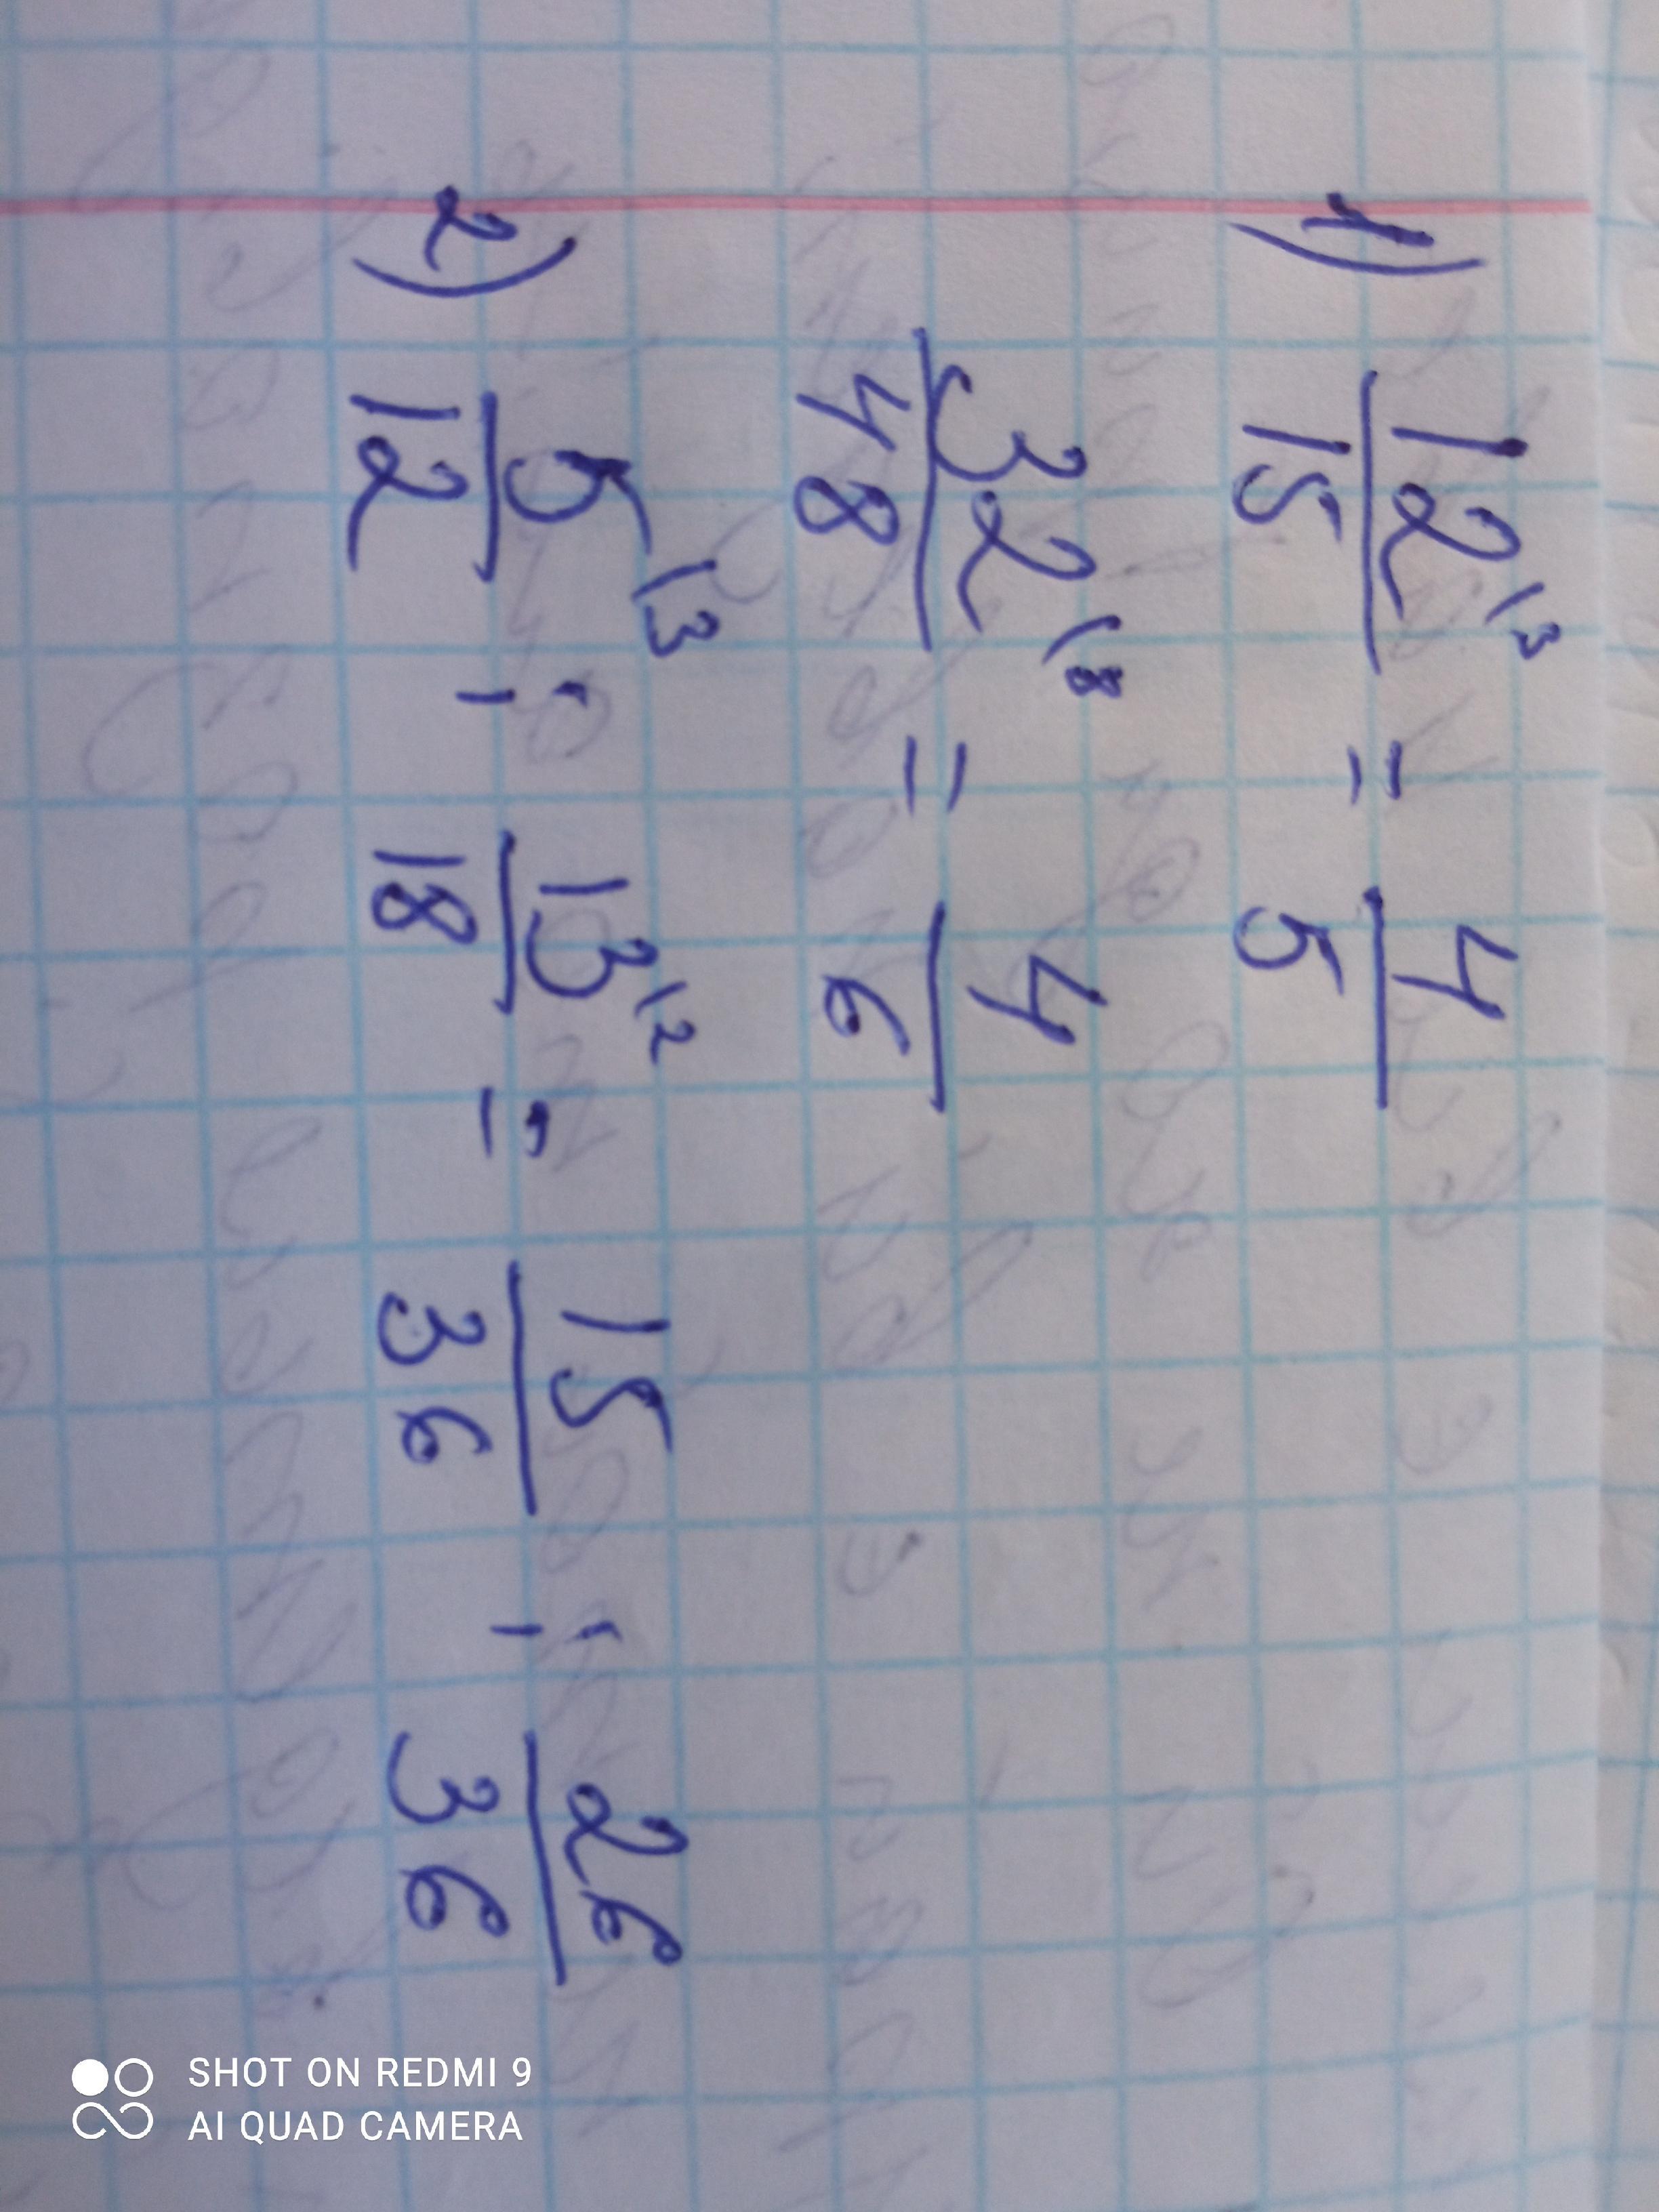 1) 12/15 \3 = 4/5
32/48 \8 = 4/6
2) 5/12 \3 ; 13/18 \2 = 15/36 ; 26/36
SHOT ON REDMI 9
AI QUAD CAMERA